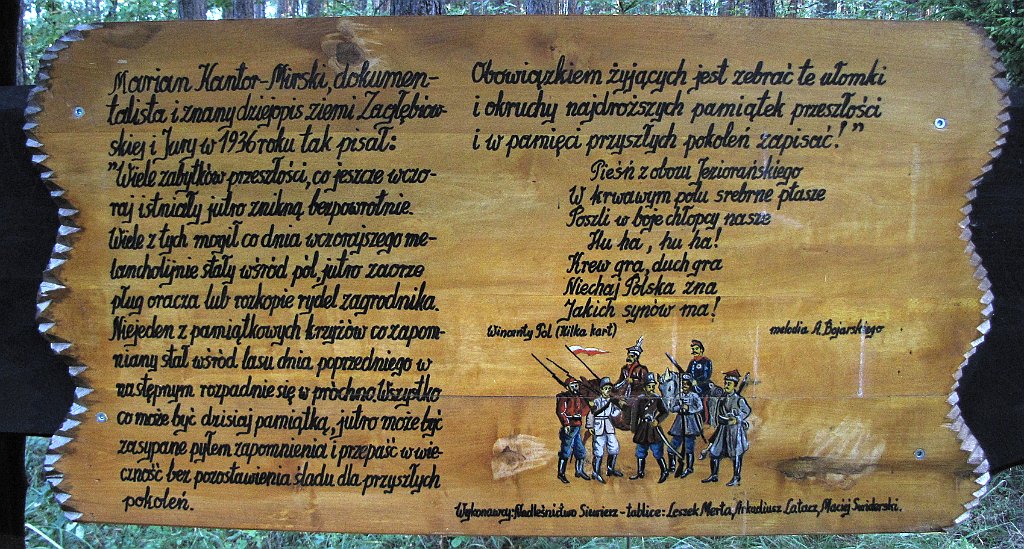 Marian Kantor-Mirski, dokumen-
talista i znany dziejopis ziemi Zagłębiow-
skiej i Jury w 1936 roku tak pisał:
"Wiele zabytków przeszłości, co jeszcze wczo-
raj istniały jutro znikną bezpowrotnie.
Wiele z tych mogił co dnia wczorajszego me-
lancholijnie stały wśród pól, jutro zaorze
pług oracza lub rozkopie rydel zagrodnika.
Niejeden z pamiątkowych krzyżów co zapom-
niany stał wśród lasu dnia poprzedniego w
następnym rozpadnie się w próchno. Wszystko
co może być dzisiaj pamiątką, jutro może być
zasypane pyłem zapomnienia i przepaść w wie-
czność bez pozostawienia śladu dla przyszłych
pokoleń.
Obowiązkiem żyjących jest zebrać te ułomki
i okruchy najdroższych pamiątek przeszłości
i w pamięci przyszłych pokoleń zapisać!"
Pieśń z obozu Jeziorańskiego
W krwawym polu srebrne ptasze
Poszli w boje chłopcy nasze
Hu ha, hu ha!
Krew gra, duch gra
Niechaj Polska zna
Jakich synów ma!
Wincenty Pol (Kilka kart)
melodia A. Bojarskiego
Wykonawcy: Nadleśnictwo Siewierz - tablice: Leszek Merta, Arkadiusz Latacz, Maciej Świderski.